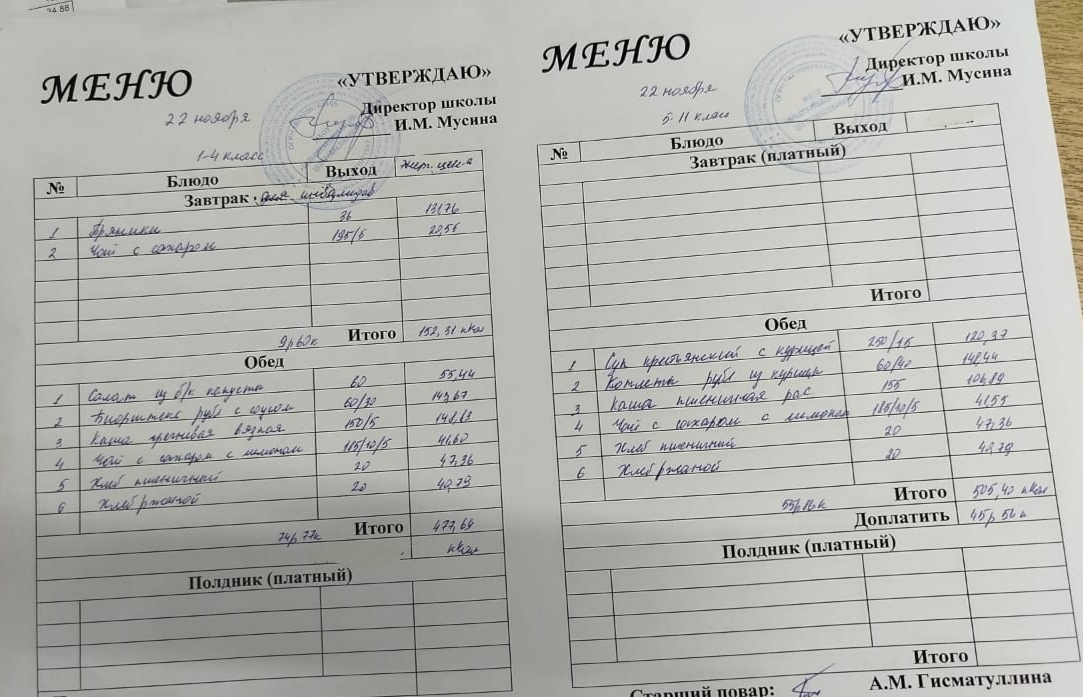 34.88
МЕНЮ
«УТВЕРЖДАЮ»
Директор школы
И.М. Мусина
22 ноября
1-4 класс
№ Блюдо Выход
Завтрак для инвалидов
1 Пряники 36 131,76
2 Чай с сахаром 195/5 20,55
9р60к Итого 152,31 кКал
Обед
1 Салат из б/к капусты 60 55,44
2 Бифштекс руб с соусом 60/30 143,67
3 Каша гречневая вязкая 150/5 148,83
4 Чай с сахаром с лимоном 185/10/5 41,60
5 Хлеб пшеничный 20 47,36
6 Хлеб ржаной 20 40,79
74р 77к Итого 477,69
кКал
Полдник (платный)
МЕНЮ
«УТВЕРЖДАЮ»
Директор школы
И.М. Мусина
22 ноября
5-11 класс
№ Блюдо Выход
Завтрак (платный)
Итого
Обед
1 Суп крестьянский с курицей 250/15 120,37
2 Котлеты руб из курицы 60/40 148,44
3 Каша пшеничная рас 155 104,89
4 Чай с сахаром с лимоном 185/10/5 41,55
5 Хлеб пшеничный 20 47,36
6 Хлеб ржаной 20 40,79
55р86к Итого 505,40 кКал
Доплатить 45р 56к
Полдник (платный)
Итого
Старший повар: А.М. Гисматуллина